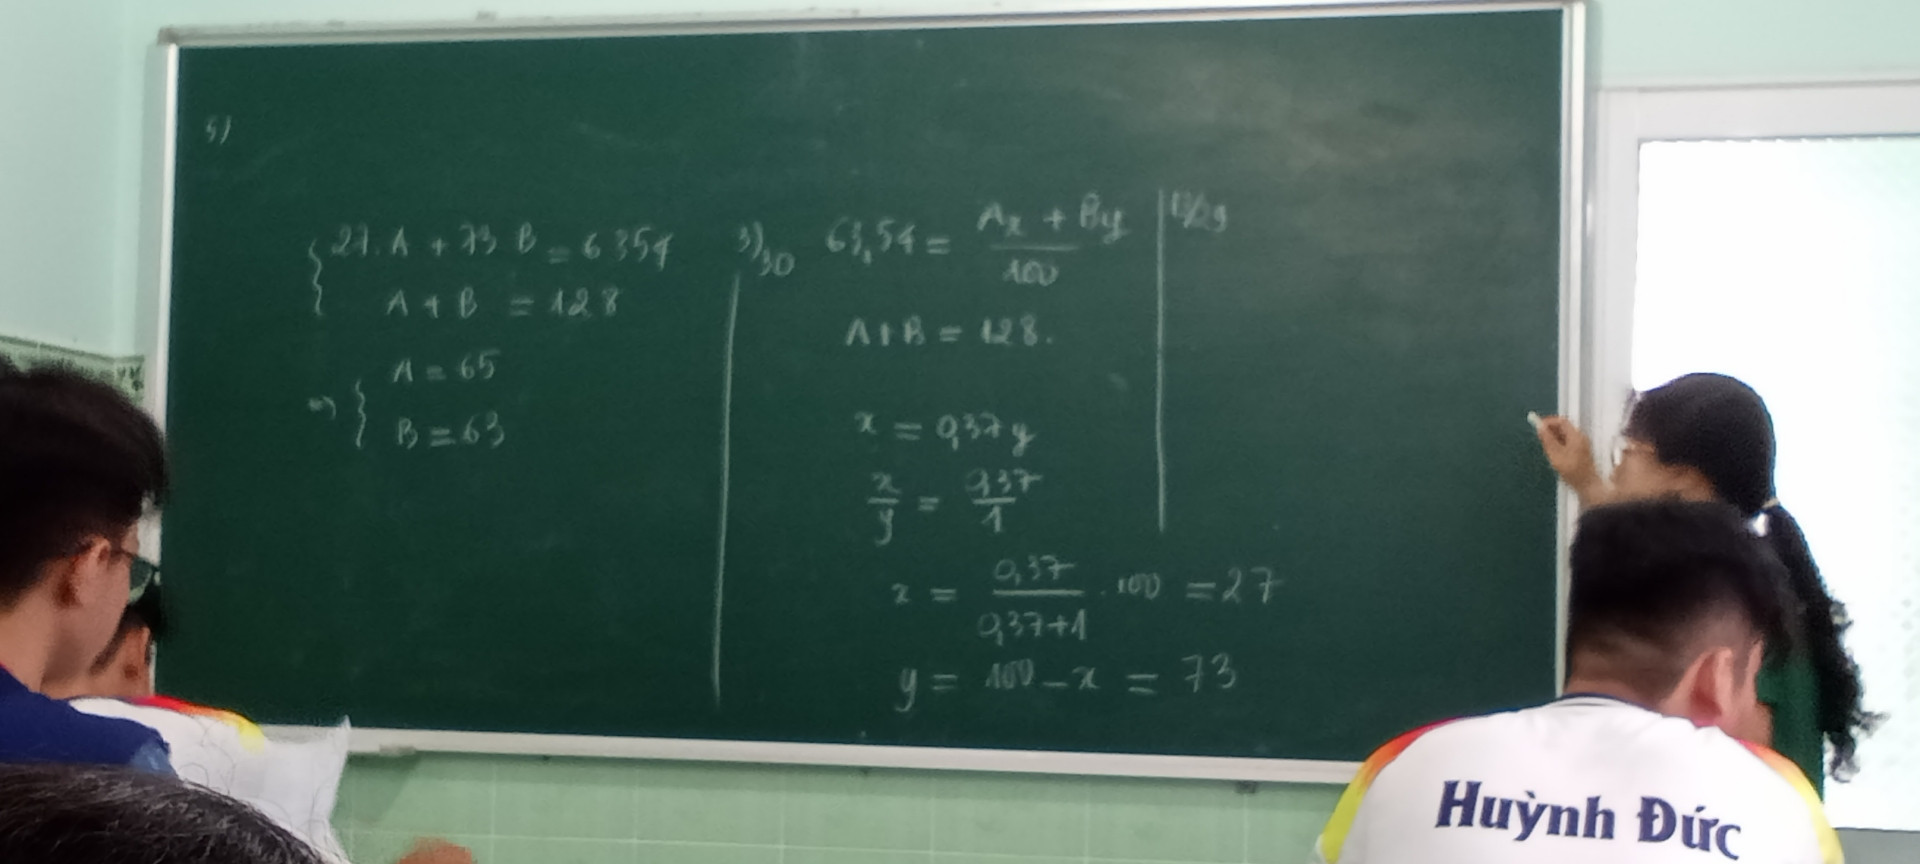 5)
27.A + 73 B = 6354
A + B = 128
A = 65
B = 63
3)
30
63,54 = Ax + By / 100
A+B = 128.
x = 0,37 y
x / y = 0,37 / 1
x = 0,37 / 0,37+1 . 100 = 27
y = 100 - x = 73
Huỳnh Đức